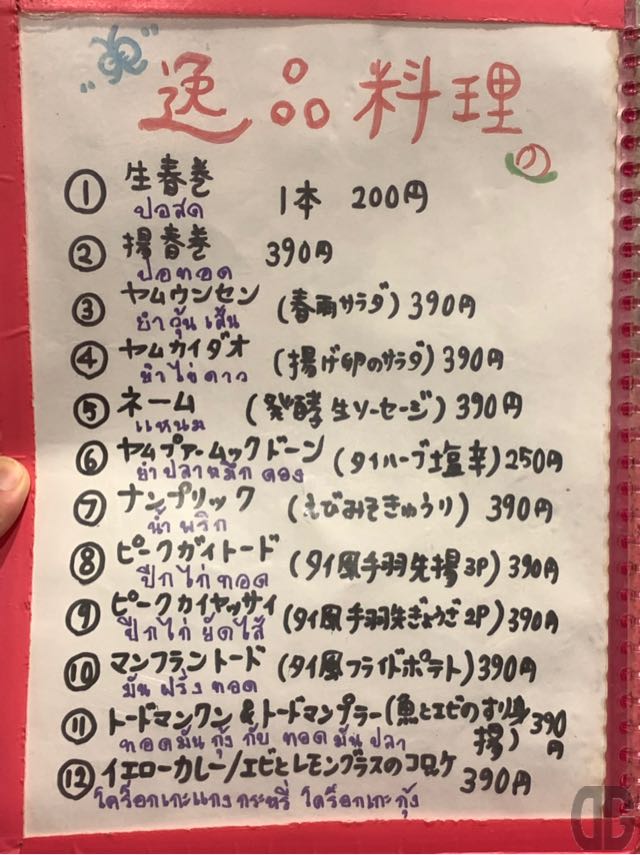 逸品料理の
① 生春巻 1本 200円
ปอสด
② 揚春巻 390円
ปอทอด
③ ヤムウンセン (春雨サラダ) 390円
ยำวุ้นเส้น
④ ヤムカイダオ (揚げ卵のサラダ) 390円
ยำไข่ดาว
⑤ ネーム (発酵生ソーセージ) 390円
แหนม
⑥ ヤムプァームックドーン (タイハーブ塩辛) 250円
ยำปลาหมึกดอง
⑦ ナンプリック (えびみそきゅうり) 390円
น้ำพริก
⑧ ピークガイトード (タイ風手羽先揚3P) 390円
ปีกไก่ทอด
⑨ ピークカイヤッサイ (タイ風手羽先ぎょうざ2P) 390円
ปีกไก่ยัดไส้
⑩ マンフラントード (タイ風フライドポテト) 390円
มันฝรั่งทอด
⑪ トードマンクン&トードマンプラー (魚とエビのすり身揚) 390円
ทอดมันกุ้งกับทอดมันปลา
⑫ イエローカレー/エビとレモングラスのコロッケ 390円
โคร็อกเกะแกงกระหรี่ โคร็อกเกะกุ้ง